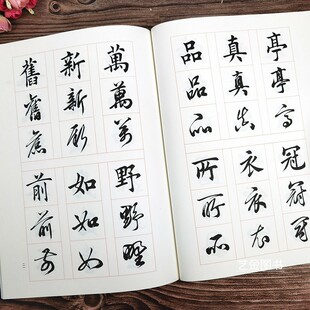 亭 真 品
亭 真 品
亭 真 品
冠 衣 所
冠 衣 所
冠 衣 所
萬 新 舊
萬 新 舊
萬 新 舊
野 如 前
野 如 前
野 如 前